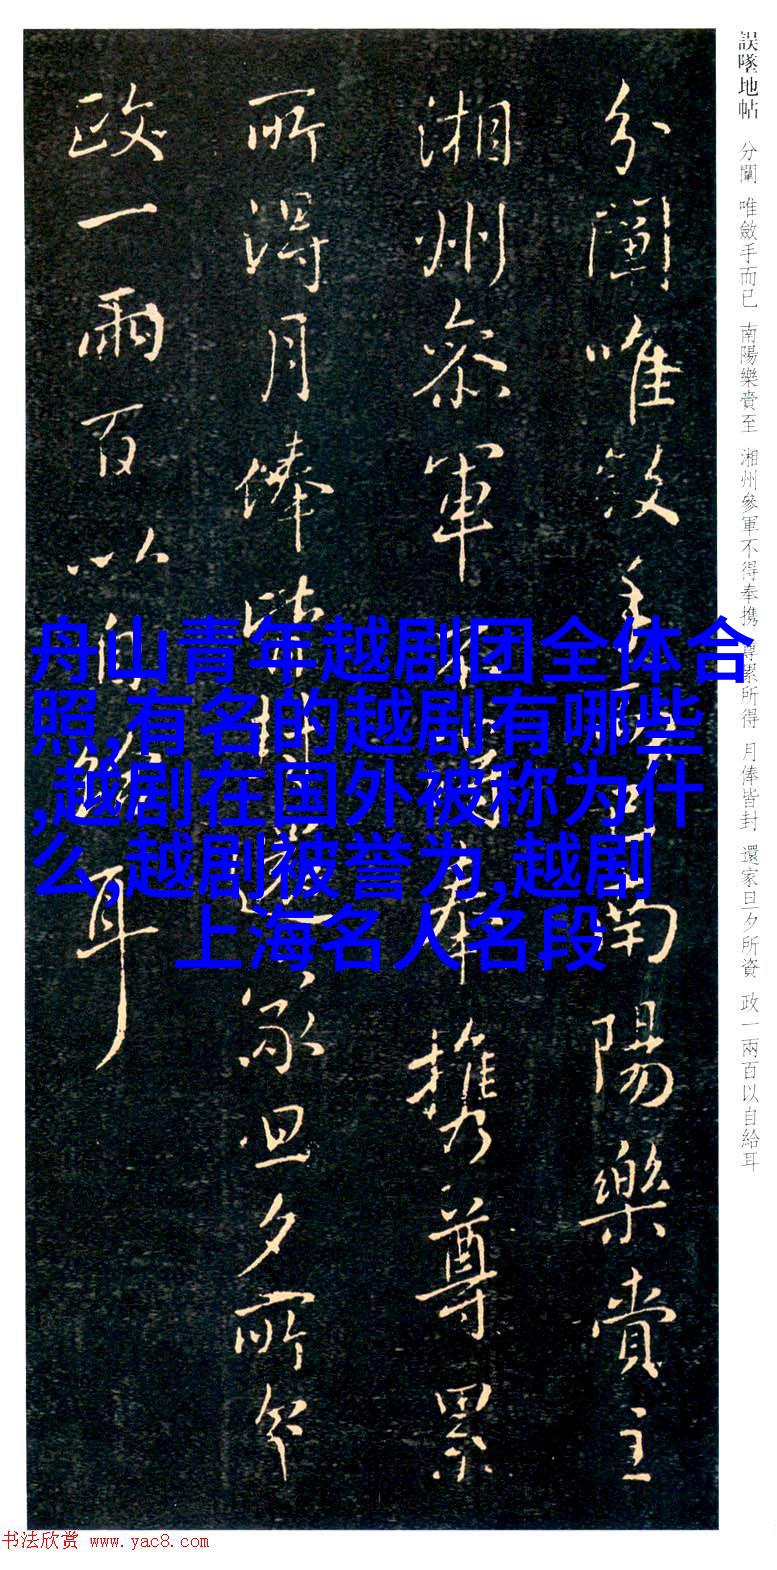 誤墜地帖 分闡 唯斂手而已 南陽樂賁至 湘州參軍不得奉携 尊累所得 月俸皆封 還家旦夕所資 政一兩百以自給耳
分闡唯斂手
南陽樂賁至
湘州參軍
奉攜尊累
所得月俸皆封還家旦夕所資
政一兩百以自給耳
舟山青年越剧团全体合
照,有名的越剧有哪些
,越剧在国外被称为什
么,越剧被誉为,越剧
上海名人名段
书法欣赏 www.yac8.com